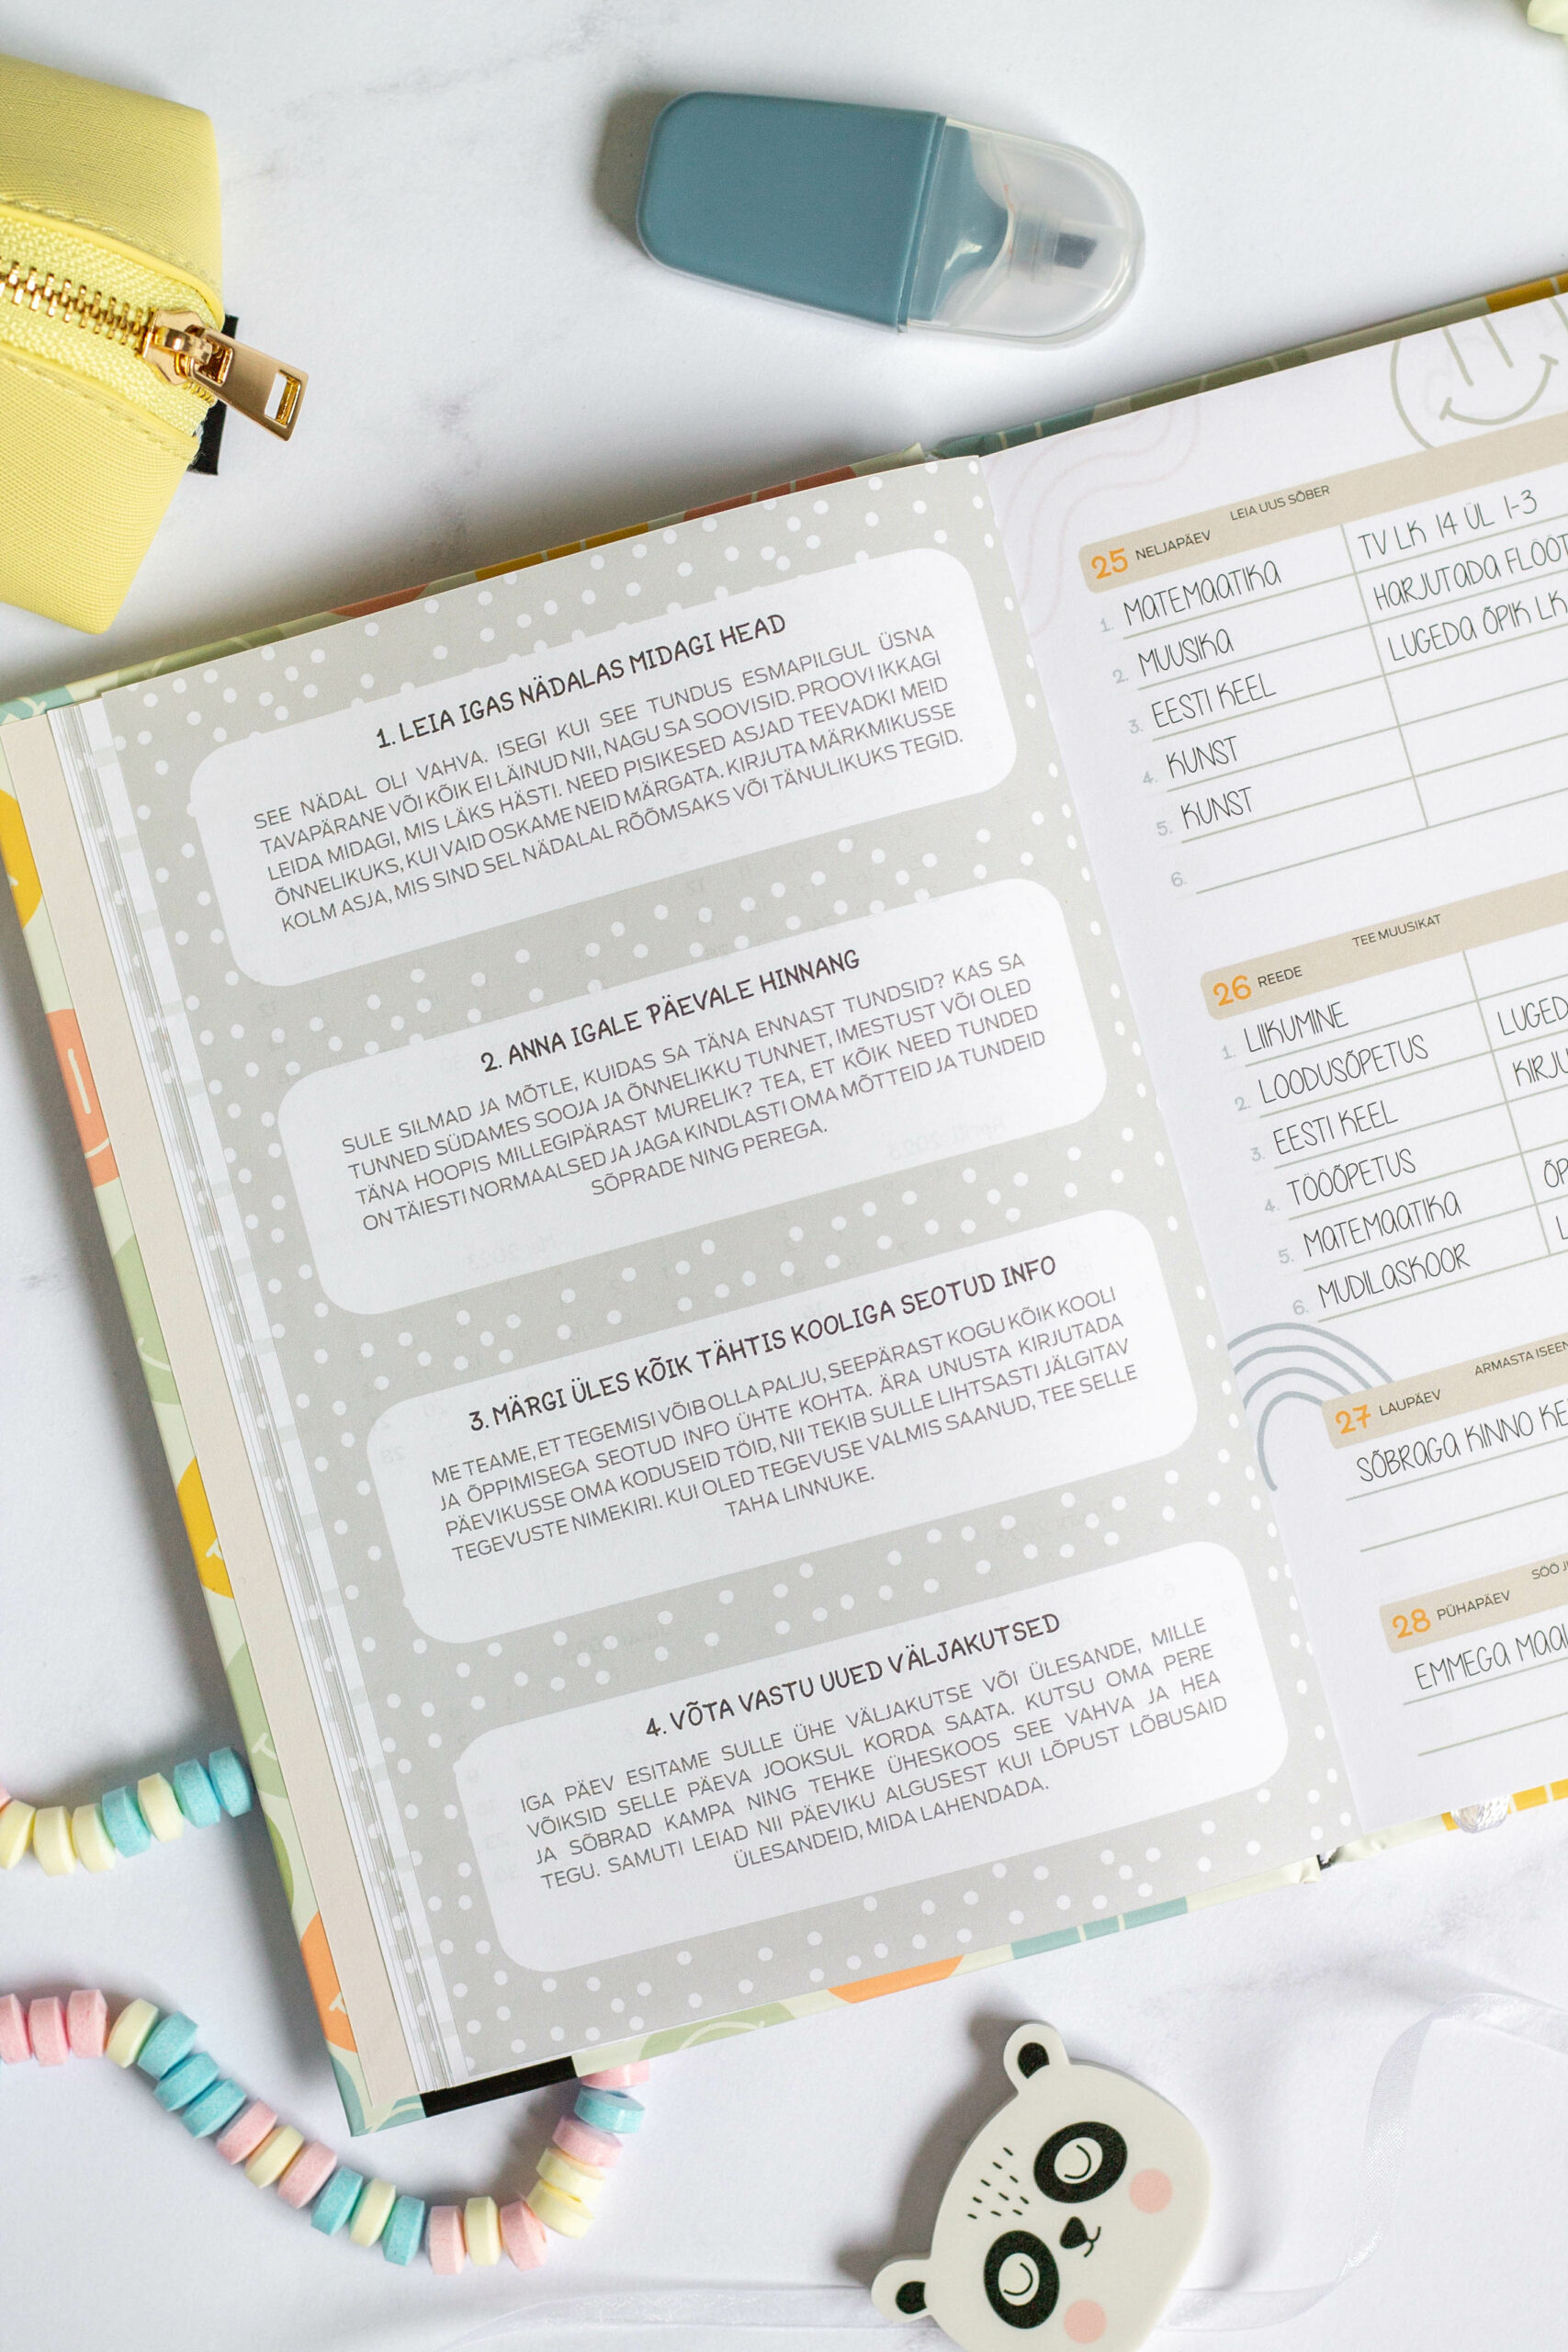 1. LEIA IGAS NÄDALAS MIDAGI HEAD
SEE NÄDAL OLI VAHVA. ISEGI KUI SEE TUNDUS ESMAPILGUL ÜSNA
TAVAPÄRANE VÕI KÕIK EI LÄINUD NII, NAGU SA SOOVISID. PROOVI IKKAGI
LEIDA MIDAGI, MIS LÄKS HÄSTI. NEED PISIKESED ASJAD TEEVADKI MEID
ÕNNELIKUKS, KUI VAID OSKAME NEID MÄRGATA. KIRJUTA MÄRKMIKUSSE
KOLM ASJA, MIS SIND SEL NÄDALAL RÕÕMSAKS VÕI TÄNULIKUKS TEGID.
2. ANNA IGALE PÄEVALE HINNANG
SULE SILMAD JA MÕTLE, KUIDAS SA TÄNA ENNAST TUNDSID? KAS SA
TUNNED SÜDAMES SOOJA JA ÕNNELIKKU TUNNET, IMESTUST VÕI OLED
TÄNA HOOPIS MILLEGIPÄRAST MURELIK? TEA, ET KÕIK NEED TUNDED
ON TÄIESTI NORMAALSED JA JAGA KINDLASTI OMA MÕTTEID JA TUNDEID
SÕPRADE NING PEREGA.
3. MÄRGI ÜLES KÕIK TÄHTIS KOOLIGA SEOTUD INFO
ME TEAME, ET TEGEMISI VÕIB OLLA PALJU, SEEPÄRAST KOGU KÕIK KOOLI
JA ÕPPIMISEGA SEOTUD INFO ÜHTE KOHTA. ÄRA UNUSTA KIRJUTADA
PÄEVIKUSSE OMA KODUSEID TÖID, NII TEKIB SULLE LIHTSASTI JÄLGITAV
TEGEVUSTE NIMEKIRI. KUI OLED TEGEVUSE VALMIS SAANUD, TEE SELLE
TAHA LINNUKE.
4. VÕTA VASTU UUED VÄLJAKUTSED
IGA PÄEV ESITAME SULLE ÜHE VÄLJAKUTSE VÕI ÜLESANDE, MILLE
VÕIKSID SELLE PÄEVA JOOKSUL KORDA SAATA. KUTSU OMA PERE
JA SÕBRAD KAMPA NING TEHKE ÜHESKOOS SEE VAHVA JA HEA
TEGU. SAMUTI LEIAD NII PÄEVIKU ALGUSEST KUI LÕPUST LÕBUSAID
ÜLESANDEID, MIDA LAHENDADA.
25 NELJAPÄEV LEIA UUS SÕBER
1. MATEMAATIKA TV LK 14 ÜL 1-3
2. MUUSIKA HARJUTADA FLÖÖT
3. EESTI KEEL LUGEDA ÕPIK LK
4. KUNST
5. KUNST
6.
26 REEDE TEE MUUSIKAT
1. LIIKUMINE
2. LOODUSÕPETUS LUGED
3. EESTI KEEL KIRJU
4. TÖÖÕPETUS
5. MATEMAATIKA ÕP
6. MUDILASKOOR L
27 LAUPÄEV ARMASTA ISEEN
SÕBRAGA KINNO KE
28 PÜHAPÄEV SÖÖ
EMMEGA MAAL